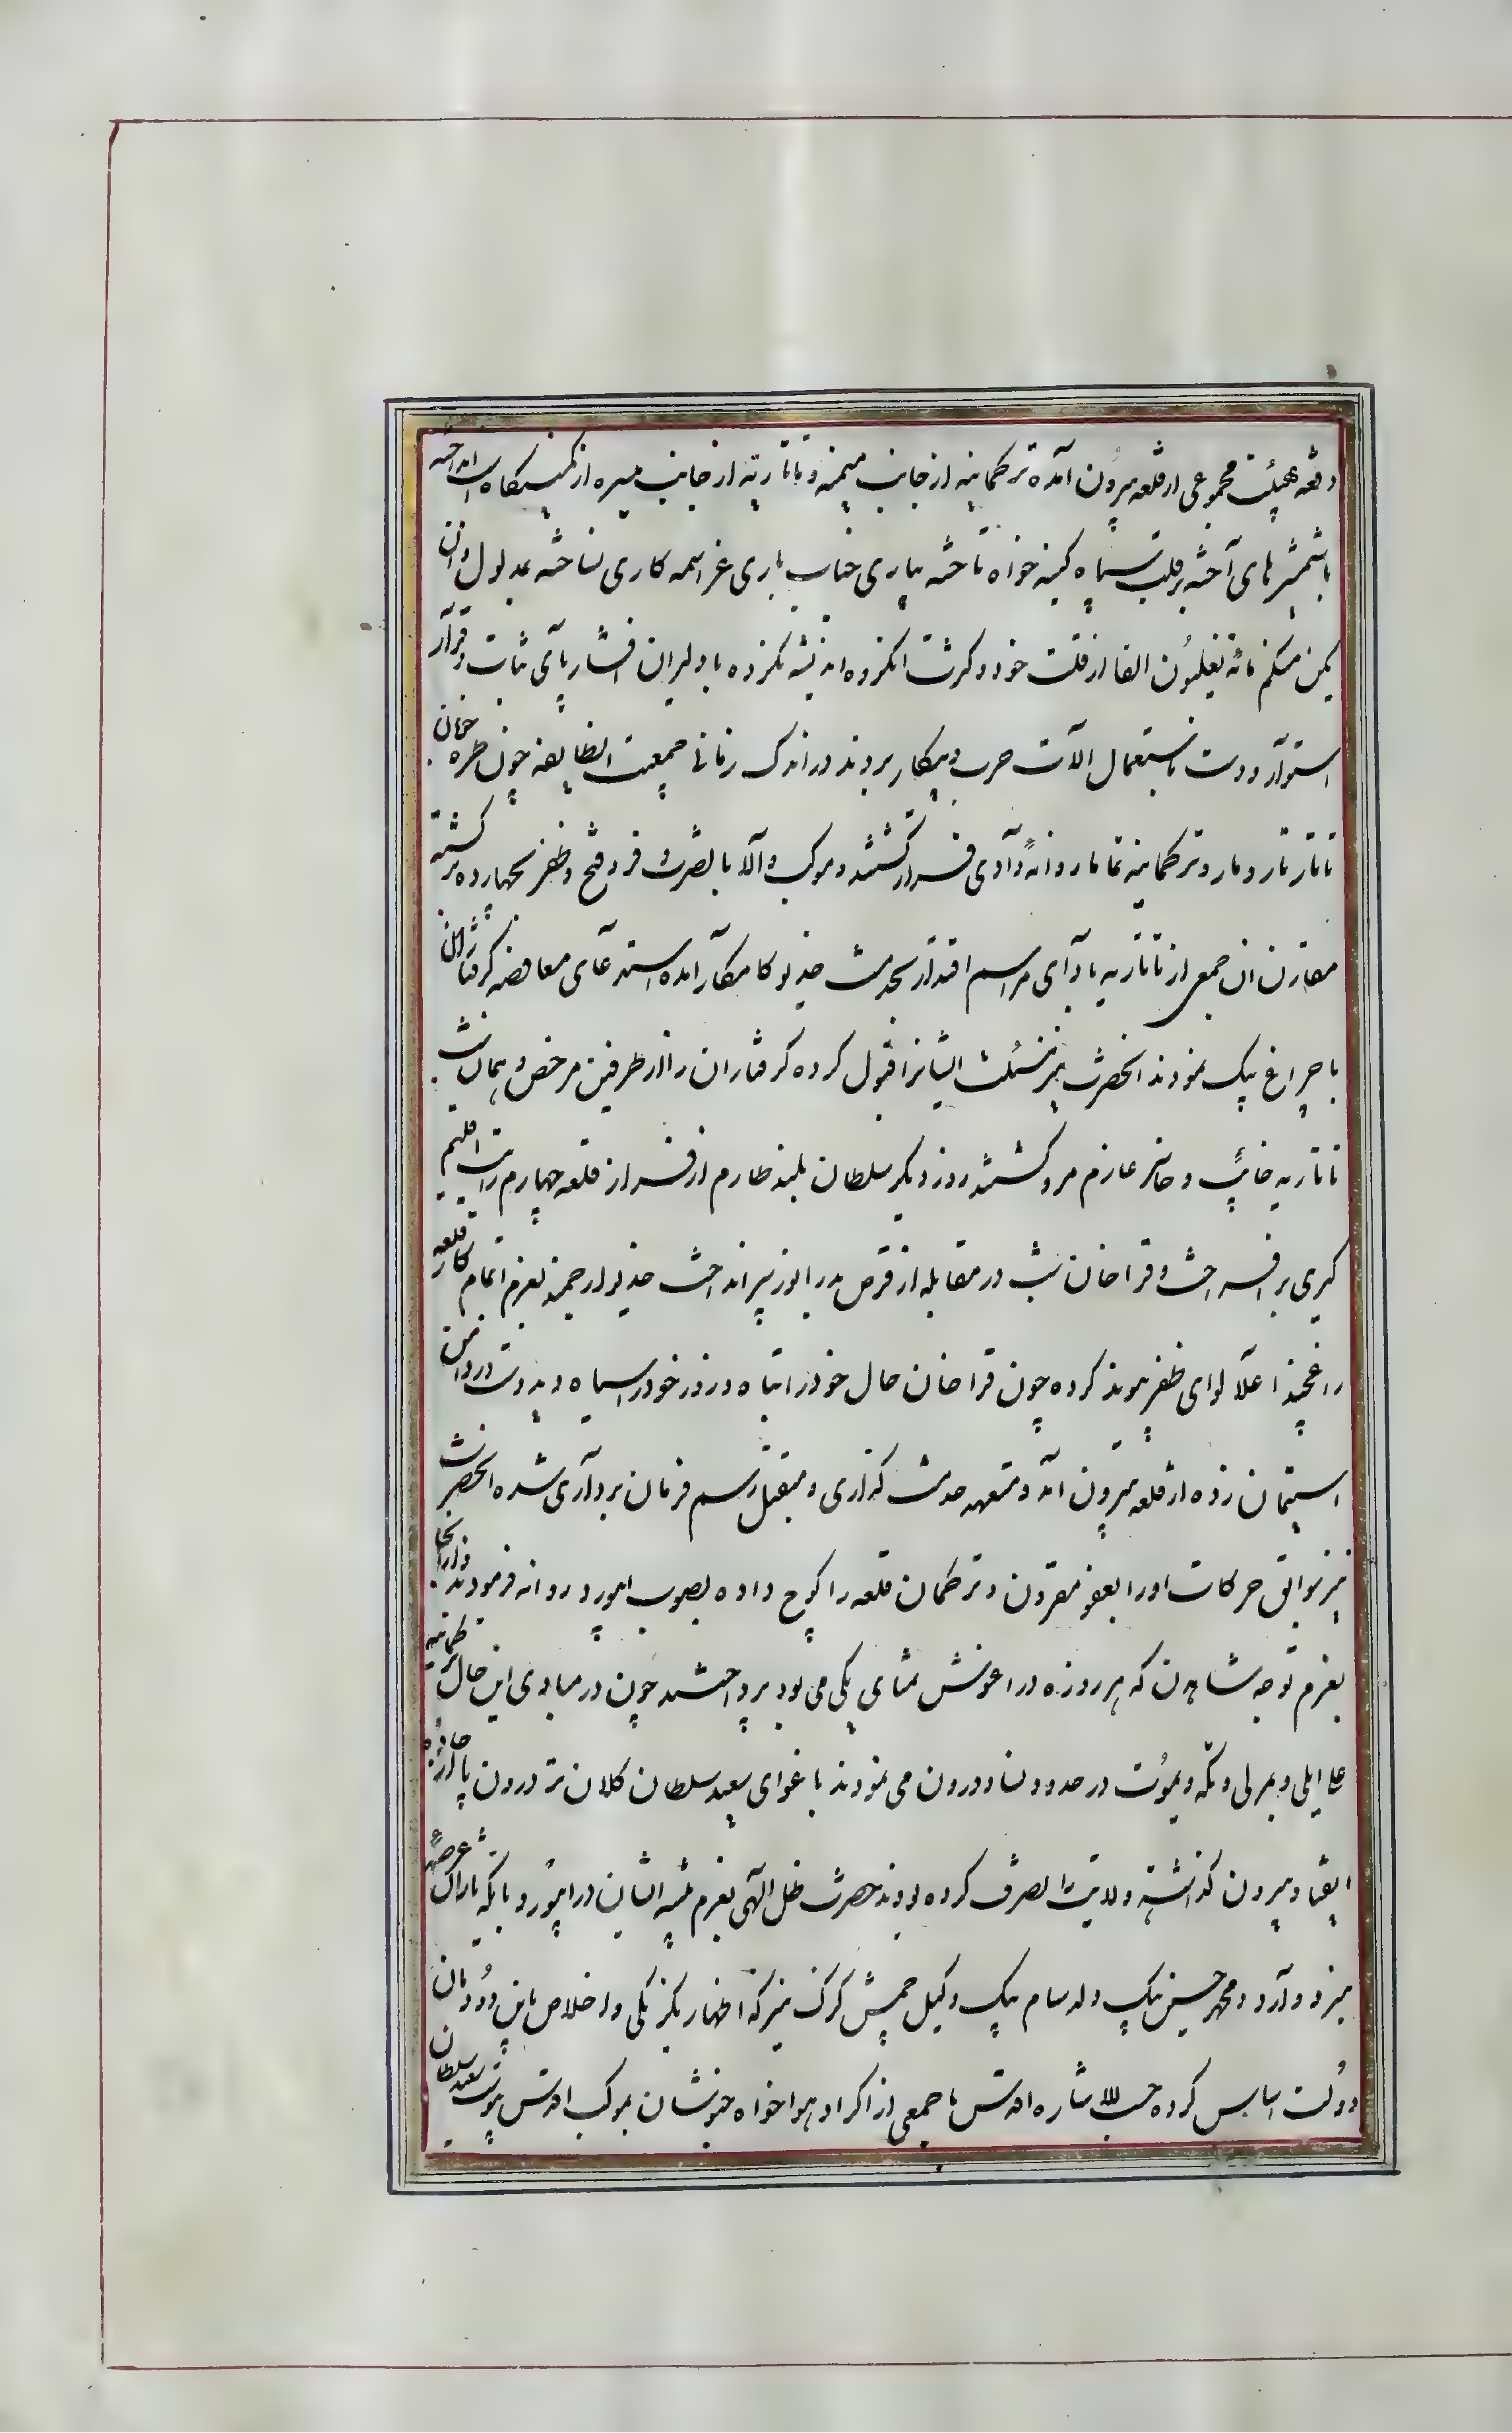 دفعه بهیئت مجموعی از قلعه بیرون آمده ترکمانیه از جانب میمنه و تاتاریه از جانب میسره از کمینگاه اسب انداخته
با شمشیرهای آخته بر قلب سپاه کینه خواه تاخته بیاری جناب باری عز اسمه کاری نساخته بمدلول و ان
یکن منکم مائة یغلبون الفا از قلت خود و کثرت انگروه اندیشه نکرده با دلیران افشار پای ثبات و قرار
استوار و دست باستعمال آلات حرب و پیکار بردند در اندک زمانی جمعیت انطایفه چون طره خوبان
تاتار تار و مار و ترکمانیه تماما روانه وادی فرار گشتند و موکب والا با نصرت و فر و فتح و ظفر بچهارده برگشته
مقارن ان جمعی از تاتاریه با دای مراسم اقتدار بخدمت خدیو کامکار آمده استدعای معاوضه گرفتاران
با چراغ بیک نمودند انحضرت نیز مسئلت ایشانرا قبول کرده گرفتاران را از طرفین مرخص و همان شب
تاتاریه خائب و خاسر عازم مرو گشتند روز دیگر سلطان بلند طارم از فراز قلعه چهارم رایت اقلیم
گیری بر افراخت و قراخان شب در مقابله از قرص بدر انور سپر انداخت خدیو ارجمند بعزم اتمام کار قلعه
راغچند اعلا لوای ظفر پیوند کرده چون قراخان حال خود را تباه و روز خود را سیاه دید دست در دامن
استیمان زده از قلعه بیرون آمد و متعهد خدمت گذاری و متقبل رسم فرمان برداری شده انحضرت
نیز سوابق حرکات او را بعفو مقرون و ترکمان قلعه را کوچ داده بصوب ابیورد روانه فرمودند و از انجا
بعزم توجه شاهدن که هر روزه در اغوش تمنای یکی می بود پرداختند چون در مبادی این حال ترکمانیه
علی ایلی و یمرلی و تکه و یموت در حدود نسا و درون می نمودند باغوای سعید سلطان کلان تر درون پا از جاده
انقیاد بیرون گذاشته ولایت را تصرف کرده بودند حضرت ظل الهی بعزم تنبیه ایشان در ابیورد با یکه تازان عرصه
نبرد وارد و محمد حسین بیک ولد سام بیک وکیل چمش گزک نیز که اظهار یکرنگی و اخلاص باین دودمان
دولت اساس کرده حسب الاشاره اقدس با جمعی از اکراد هواخواه خبوشان بموکب اقدس پیوست سعید سلطان